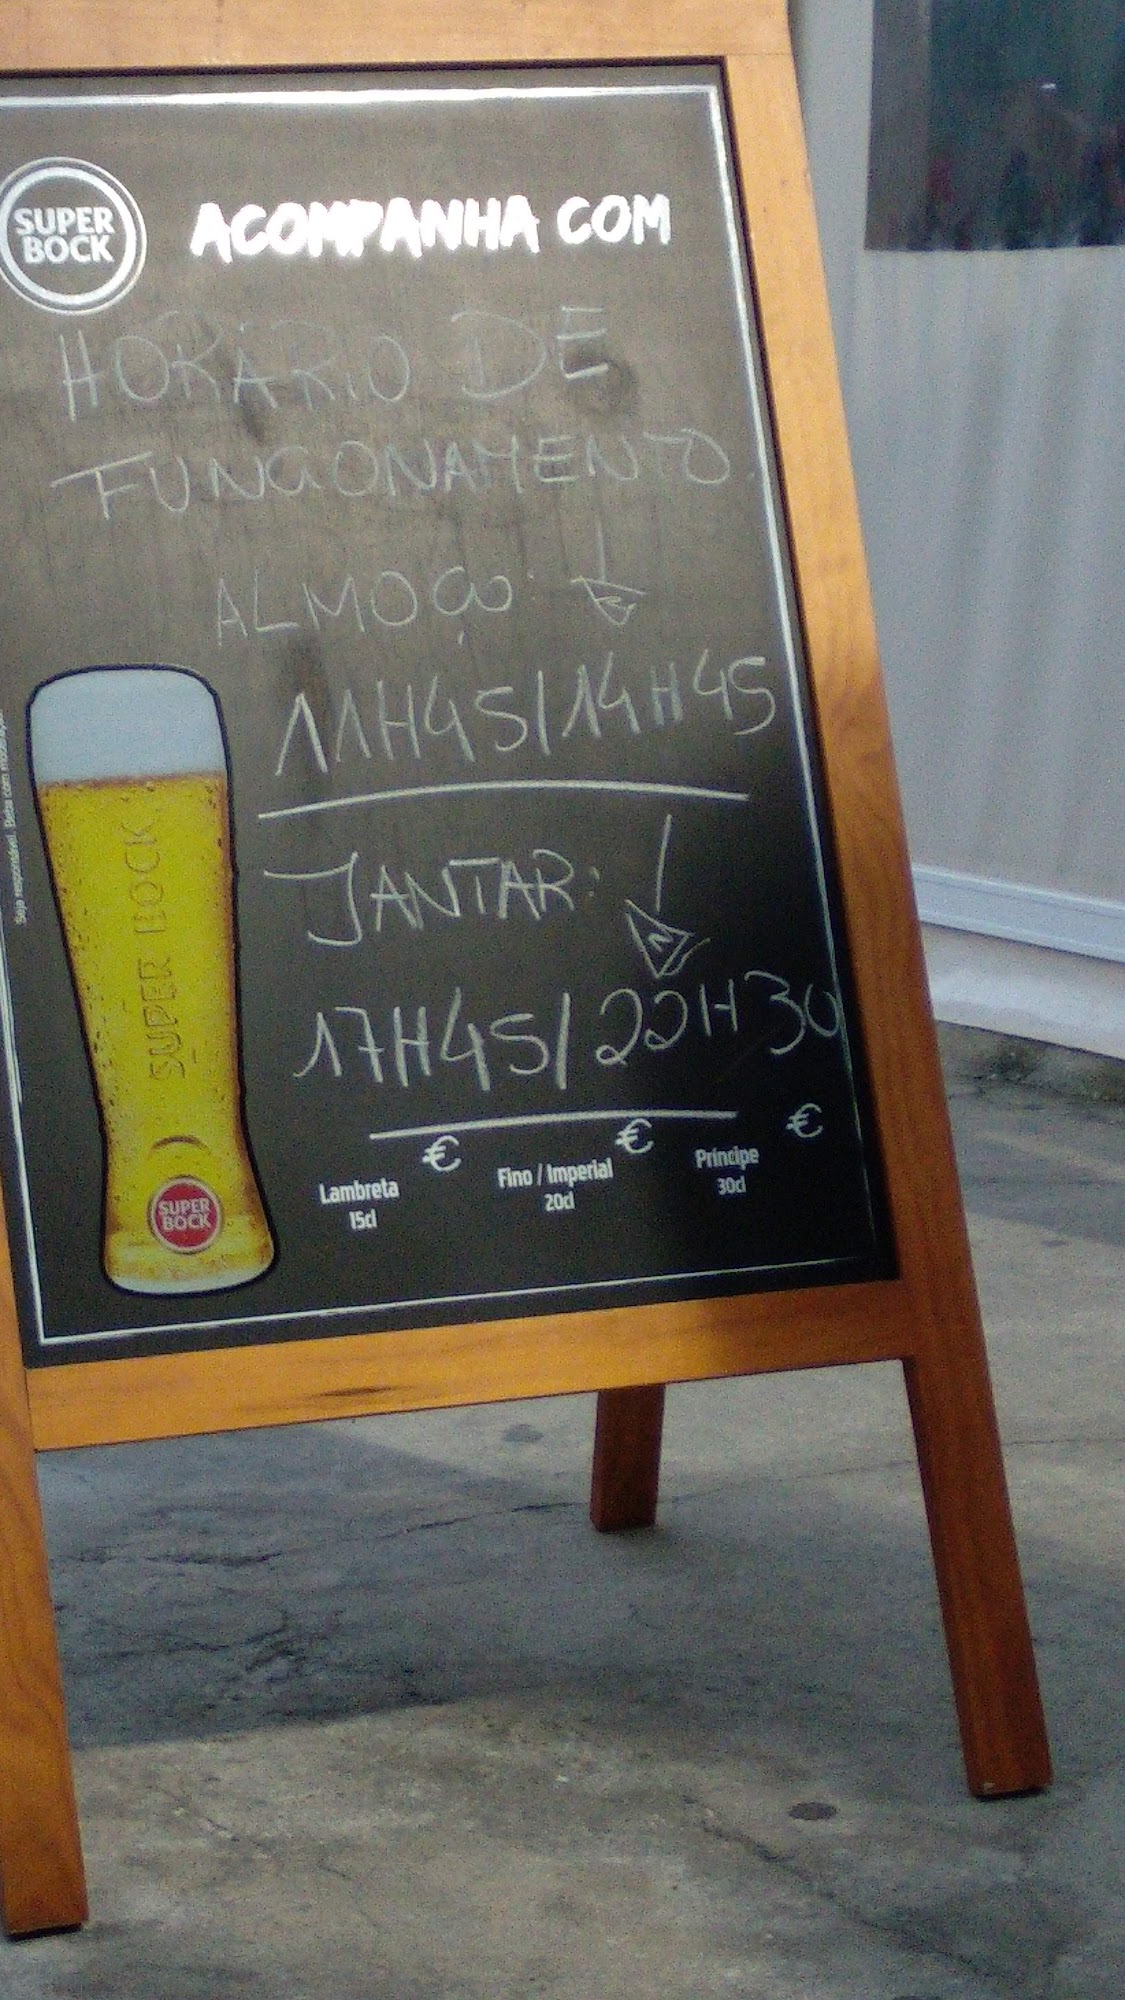 SUPER
BOCK
ACOMPANHA COM
HORÁRIO DE
FUNCIONAMENTO.
ALMOÇO:
11H45/14H45
JANTAR:
17H45/22H30
€ € €
Lambreta
15cl
Fino / Imperial
20cl
Príncipe
30cl
SUPER BOCK
SUPER
BOCK
Seja responsável. Beba com moderação.